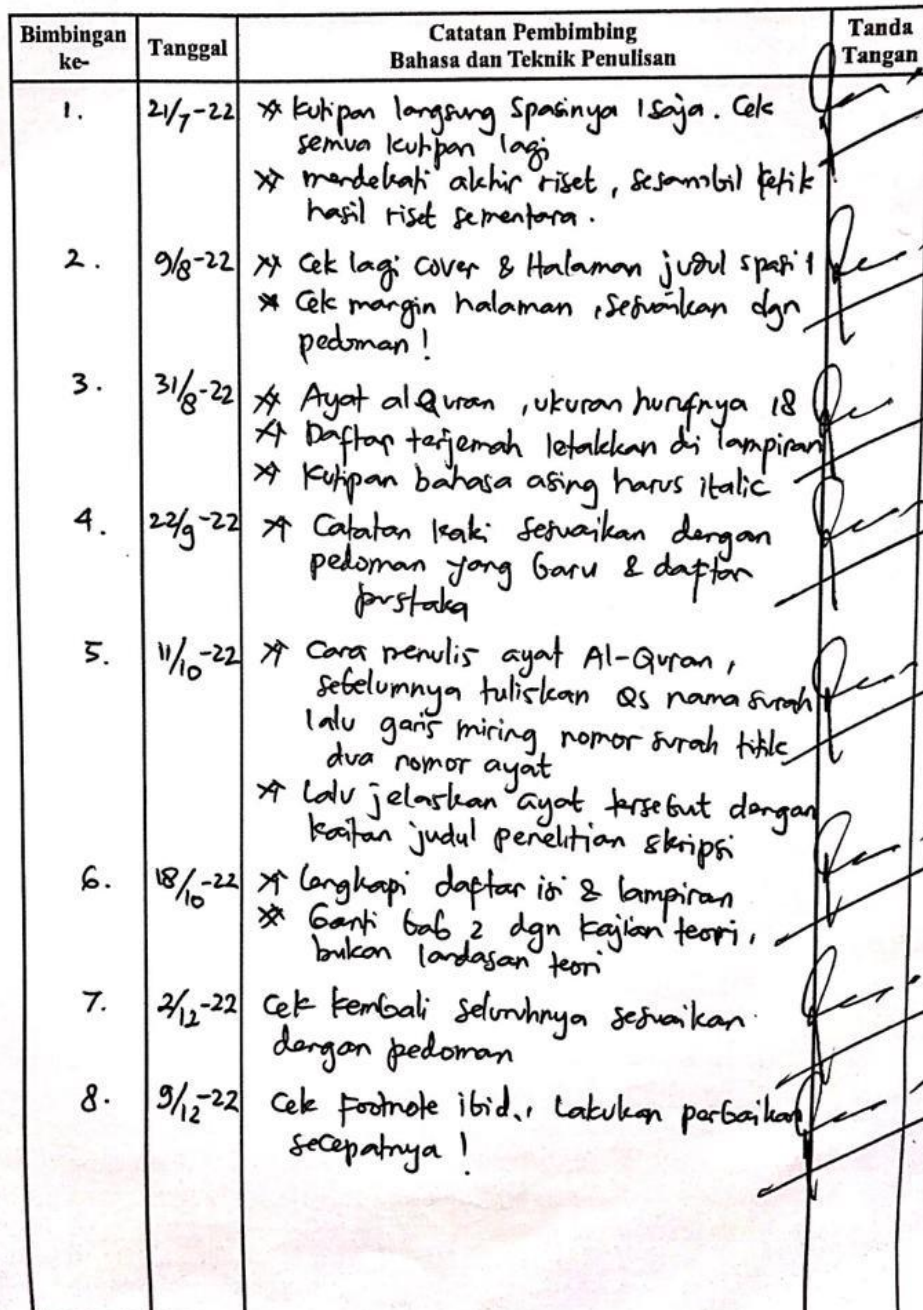 Bimbingan ke- Tanggal Catatan Pembimbing Bahasa dan Teknik Penulisan Tanda Tangan
1. 21/7-22 Kutipan langsung Spasinya 1 saja. Cek
semua kutipan lagi
mendekati akhir riset, sesambil ketik
hasil riset sementara.
2. 9/8-22 Cek lagi cover & Halaman judul spasi 1
Cek margin halaman, sesuaikan dgn
pedoman!
3. 31/8-22 Ayat al Quran, ukuran hurufnya 18
Daftar terjemah letakkan di lampiran
Kutipan bahasa asing harus italic
4. 22/9-22 Catatan kaki sesuaikan dengan
pedoman yang baru & daftar
pustaka
5. 11/10-22 Cara menulis ayat Al-Quran,
sebelumnya tuliskan Qs nama surah
lalu garis miring nomor surah titik
dua nomor ayat
Lalu jelaskan ayat tersebut dengan
kaitan judul penelitian skripsi
6. 18/10-22 Lengkapi daftar isi & lampiran
Ganti bab 2 dgn kajian teori,
bukan landasan teori
7. 2/12-22 Cek kembali seluruhnya sesuaikan
dengan pedoman
8. 9/12-22 Cek Footnote ibid., Lakukan perbaikan
secepatnya!